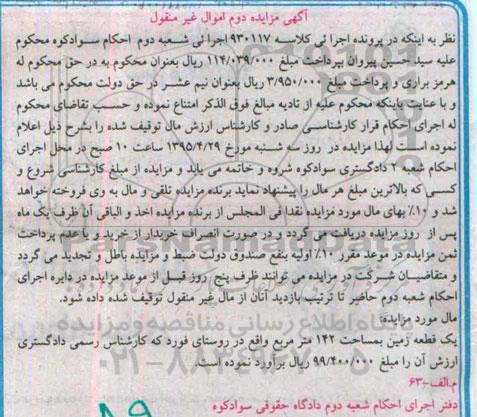 آگهی مزایده دوم اموال غیر منقول
نظر به اینکه در پرونده اجرا ئی کلاسه ۹۳۰۱۱۷ اجرا ئی شعبه دوم احکام سوادکوه محکوم
علیه سید حسین پیروان بپرداخت مبلغ ۱۱۴/۰۳۹/۰۰۰ ریال بعنوان محکوم به در حق محکوم له
هرمز براری و پرداخت مبلغ ۳/۹۵۰/۰۰۰ ریال بعنوان نیم عشر در حق دولت محکوم می باشد
و با عنایت باینکه محکوم علیه از تادیه مبالغ فوق الذکر امتناع نموده و حسب تقاضای محکوم
له اجرای احکام قرار کارشناسی صادر و کارشناس ارزش مال توقیف شده را بشرح ذیل اعلام
نموده است لهذا مزایده در روز سه شنبه مورخ ۱۳۹۵/۴/۲۹ ساعت ۱۰ صبح در محل اجرای
احکام شعبه ۲ دادگستری سوادکوه شروه و خاتمه می یابد و مزایده از مبلغ کارشناسی شروع و
کسی که بالاترین مبلغ هر مال را پیشنهاد نماید برنده مزایده تلقی و مال به وی فروخته خواهد
شد و ۱۰٪ بهای مال مورد مزایده نقدا فی المجلس از برنده مزایده اخذ و الباقی آن ظرف یک ماه
پس از روز مزایده دریافت می گردد و در صورت انصراف خریدار از خرید و یا عدم پرداخت
ثمن مزایده در موعد مقرر ۱۰٪ اولیه بنفع صندوق دولت ضبط و مزایده باطل و تجدید می گردد
و متقاضیان شرکت در مزایده می توانند ظرف پنج روز قبل از موعد مزایده در دایره اجرای
احکام شعبه دوم حاضر تا ترتیب بازدید آنان از مال غیر منقول توقیف شده داده شود.
مال مورد مزایده:
یک قطعه زمین بمساحت ۱۴۲ متر مربع واقع در روستای فورد که کارشناس رسمی دادگستری
ارزش آن را مبلغ ۹۹/۴۰۰/۰۰۰ ریال براورد نموده است.
م.الف-۶۳
دفتر اجرای احکام شعبه دوم دادگاه حقوقی سوادکوه
ParsNamadData
پایگاه اطلاع رسانی مناقصه و مزایده
۰۲۱-۸۸۳۴۹۶۷۰-۵